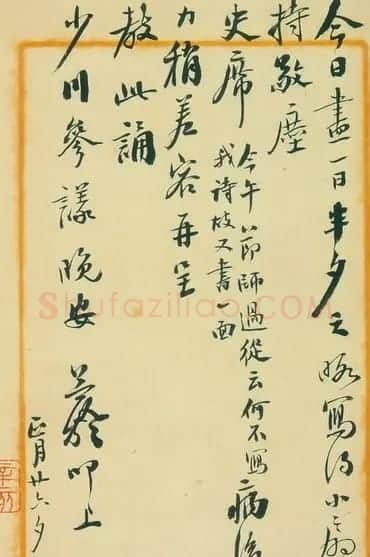 今日畫一日半夕之暇寫得小扇
持敬塵
史席
今午節師過從云何不寫
我詩故又書一面
病後
力稍差容再呈
教此誦
少川參議晚安 叩上
正月廿六夕
Shufaziliao.COM